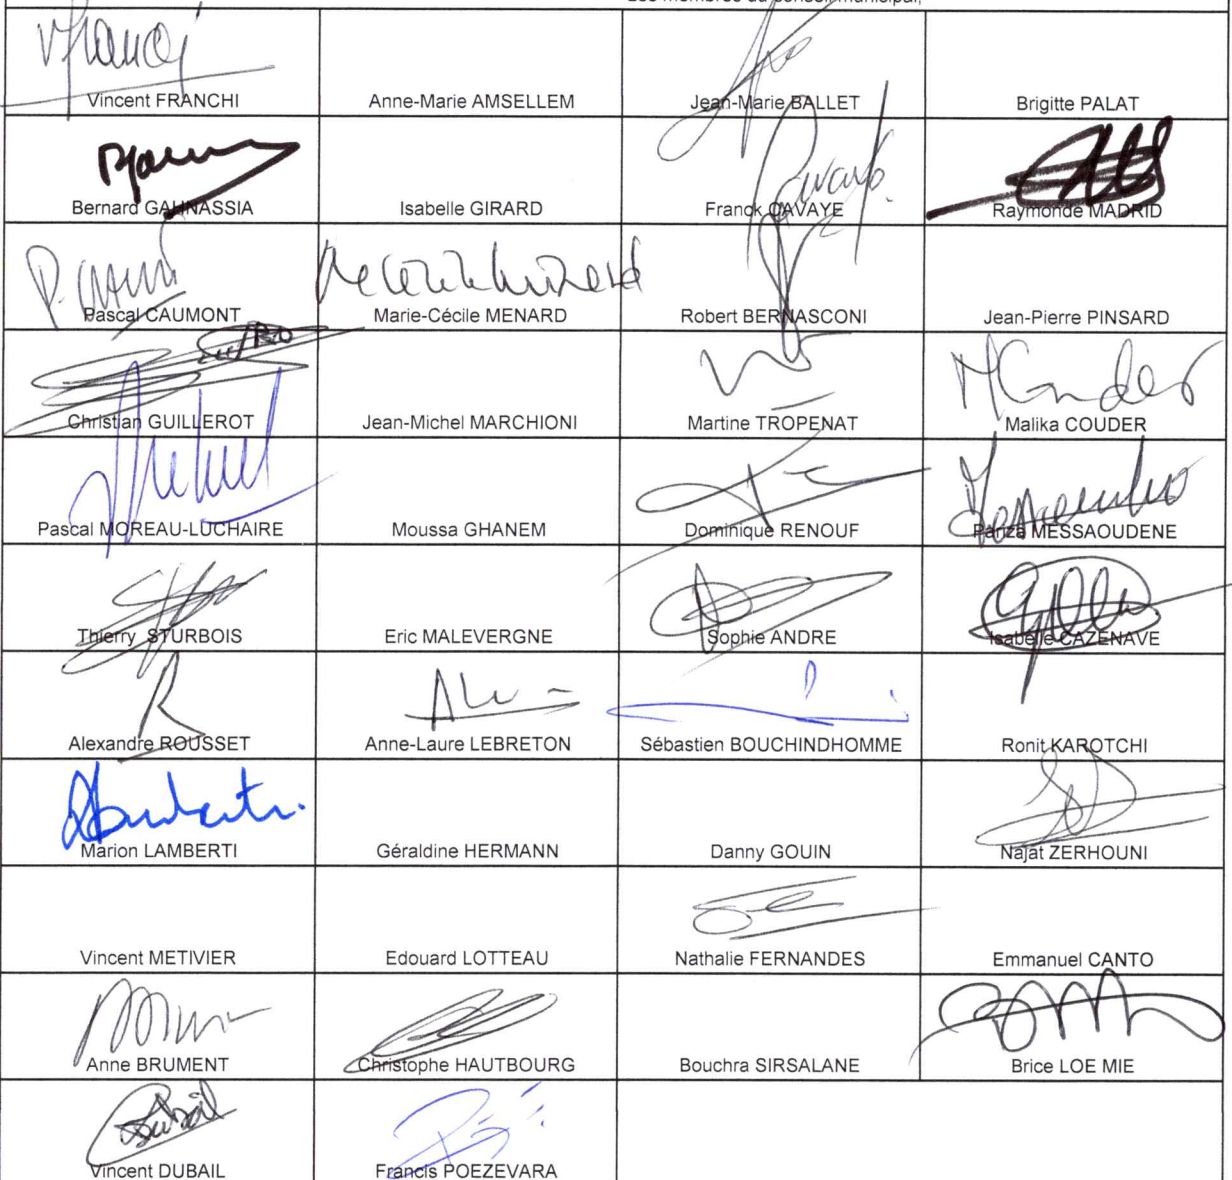 Les membres du conseil municipal,
Vincent FRANCHI Anne-Marie AMSELLEM Jean-Marie BALLET Brigitte PALAT
Bernard GAHNASSIA Isabelle GIRARD Franck CAVAYE Raymonde MADRID
Pascal CAUMONT Marie-Cécile MENARD Robert BERNASCONI Jean-Pierre PINSARD
Christian GUILLEROT Jean-Michel MARCHIONI Martine TROPENAT Malika COUDER
Pascal MOREAU-LUCHAIRE Moussa GHANEM Dominique RENOUF Fariza MESSAOUDENE
Thierry STURBOIS Eric MALEVERGNE Sophie ANDRE Isabelle CAZENAVE
Alexandre ROUSSET Anne-Laure LEBRETON Sébastien BOUCHINDHOMME Ronit KAROTCHI
Marion LAMBERTI Géraldine HERMANN Danny GOUIN Najat ZERHOUNI
Vincent METIVIER Edouard LOTTEAU Nathalie FERNANDES Emmanuel CANTO
Anne BRUMENT Christophe HAUTBOURG Bouchra SIRSALANE Brice LOE MIE
Vincent DUBAIL Francis POEZEVARA